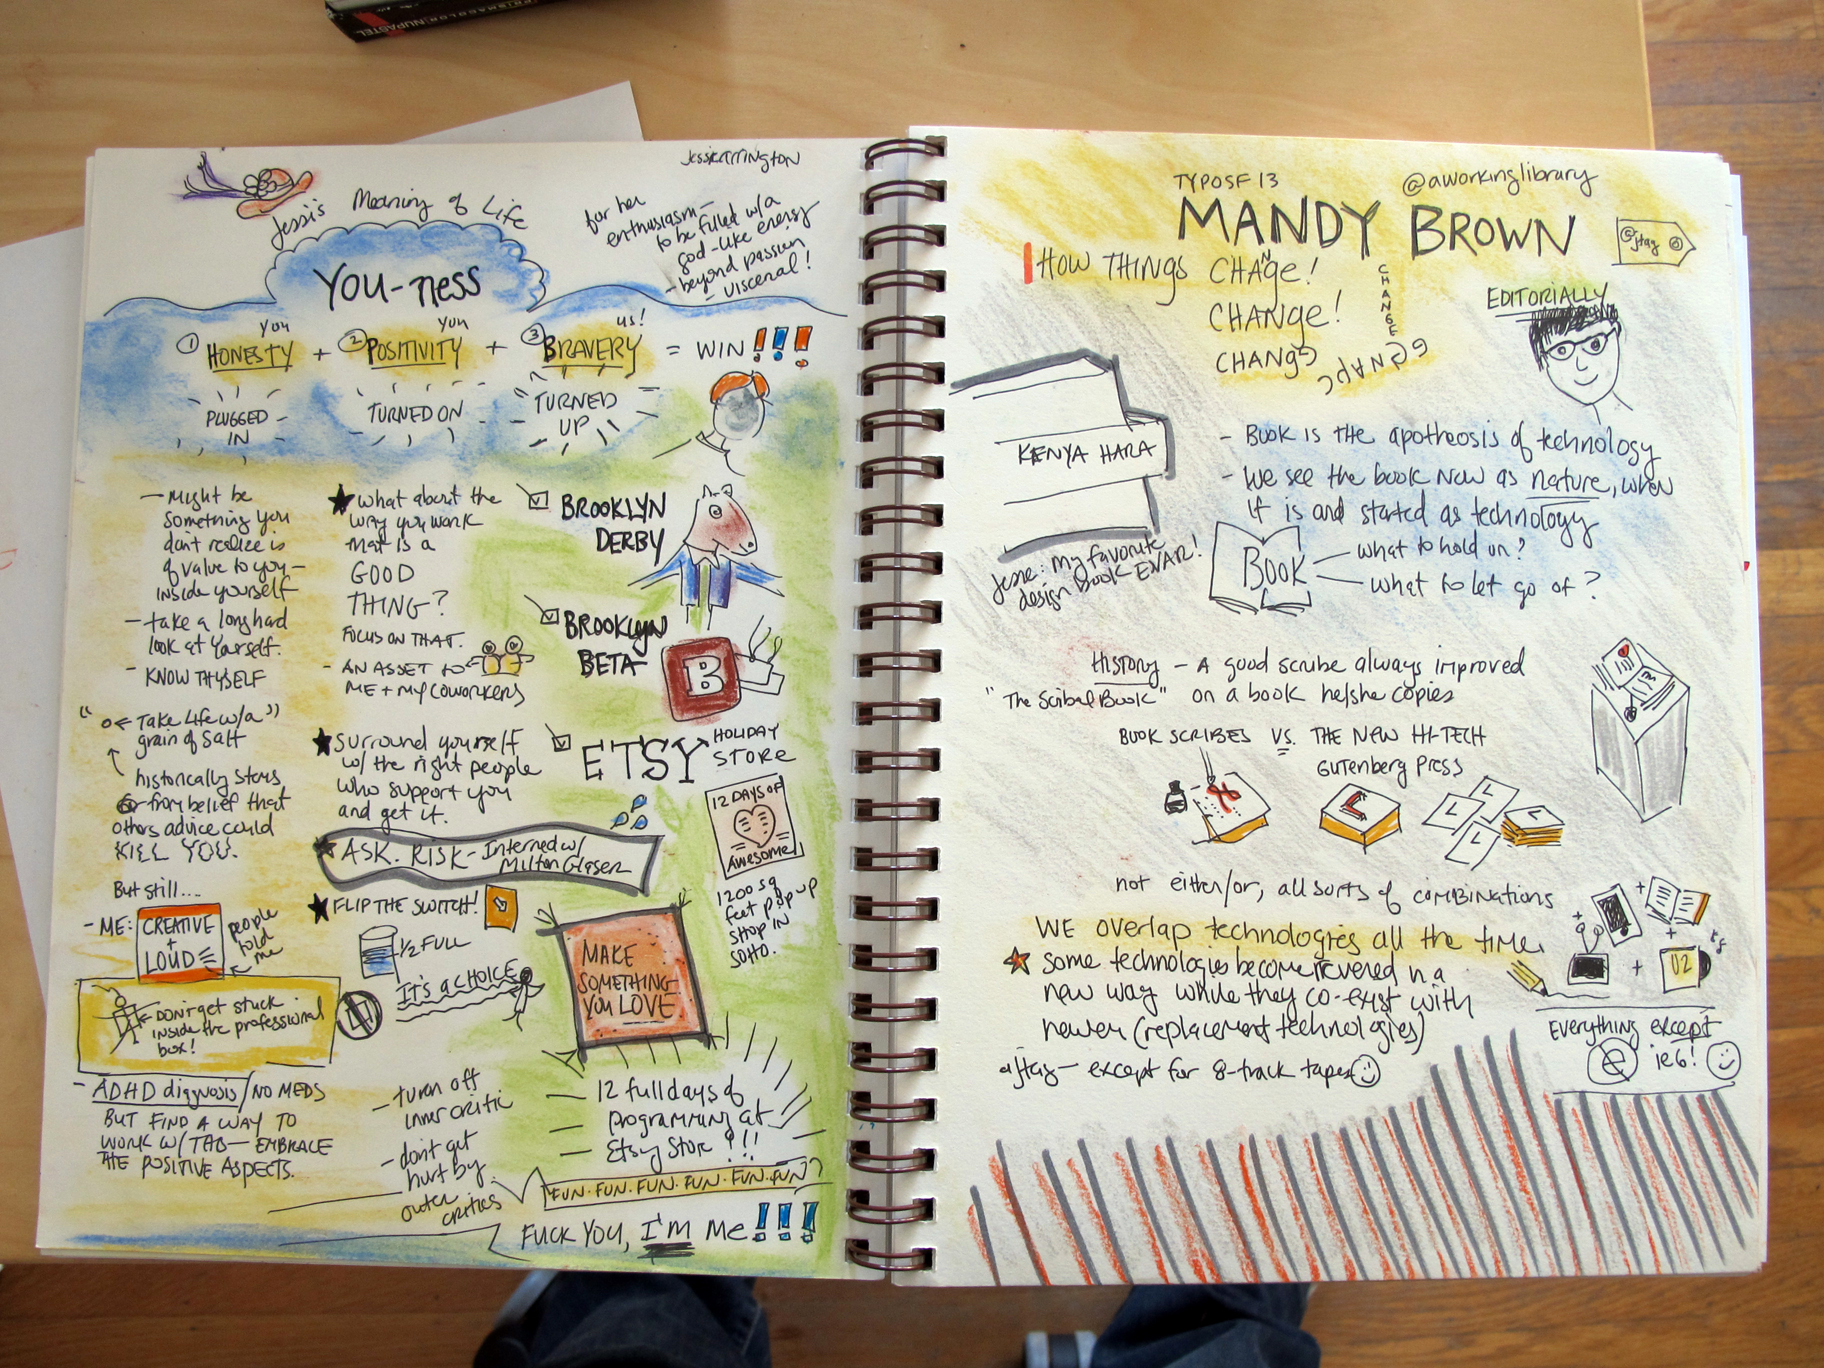 PRISMACOLOR NUPASTEL
Jessicarrington
Jessi's Meaning of Life
for her
enthusiasm—
to be filled w/a
god-like energy
- beyond passion
- visceral!
YOU-ness
you you us!
① HONESTY + ② POSITIVITY + ③ BRAVERY = WIN!!!
PLUGGED
IN
TURNED ON
TURNED
UP
— Might be
something you
don't realize is
of value to you—
inside yourself
— take a long hard
look at yourself.
- KNOW THYSELF
" Take Life w/a "
grain of salt
historically stems
from belief that
others advice could
KILL YOU.
But still...
- ME: CREATIVE
+
LOUD
people
told
me
Don't get stuck
inside the professional
box!
- ADHD diagnosis/NO MEDS
BUT FIND A WAY TO
WORK W/THAT— EMBRACE
THE POSITIVE ASPECTS.
★ What about the
way you work
that is a
GOOD
THING?
FOCUS ON THAT.
- AN ASSET to
ME + MY COWORKERS
★ Surround yourself
w/the right people
who support you
and get it.
★ ASK. RISK- Interned w/
Milton Glaser
★ FLIP THE SWITCH!
1/2 FULL
It's a CHOICE
- turn off
inner critic
- don't get
hurt by
outer
critics
BROOKLYN
DERBY
BROOKLYN
BETA
B
ETSY HOLIDAY
STORE
12 DAYS OF
Awesome
1200 sq
feet pop up
shop in
SOHO.
MAKE
SOMETHING
YOU LOVE
12 full days of
programming at
Etsy Store!!!
FUN. FUN. FUN. FUN. FUN. FUN
FUCK YOU, I'M Me!!!
TYPOSF 13
@aworkinglibrary
MANDY BROWN
@jtag
HOW THINGS CHANge!
CHANge!
CHANGG
CHANGE
EDITORIALLY
KENYA HARA
Jesse: My favorite
design Book EVAR!
- BOOK is the apotheosis of technology
- We see the book NOW as nature, when
it is and started as technology
BOOK
what to hold on?
what to let go of?
History - A good scribe always improved
"The Scribal Book" on a book he/she copies
BOOK SCRIBES VS. THE NEW HI-TECH
GUTENBERG PRESS
L
L
L
L
L
not either/or, all sorts of COMBINATIONS
WE overlap technologies all the time.
★ some technologies become revered in a
new way while they co-exist with
newer (replacement technologies)
ajtag— except for 8-track tapes
+
+
+
+
U2
Everything except
ie6!